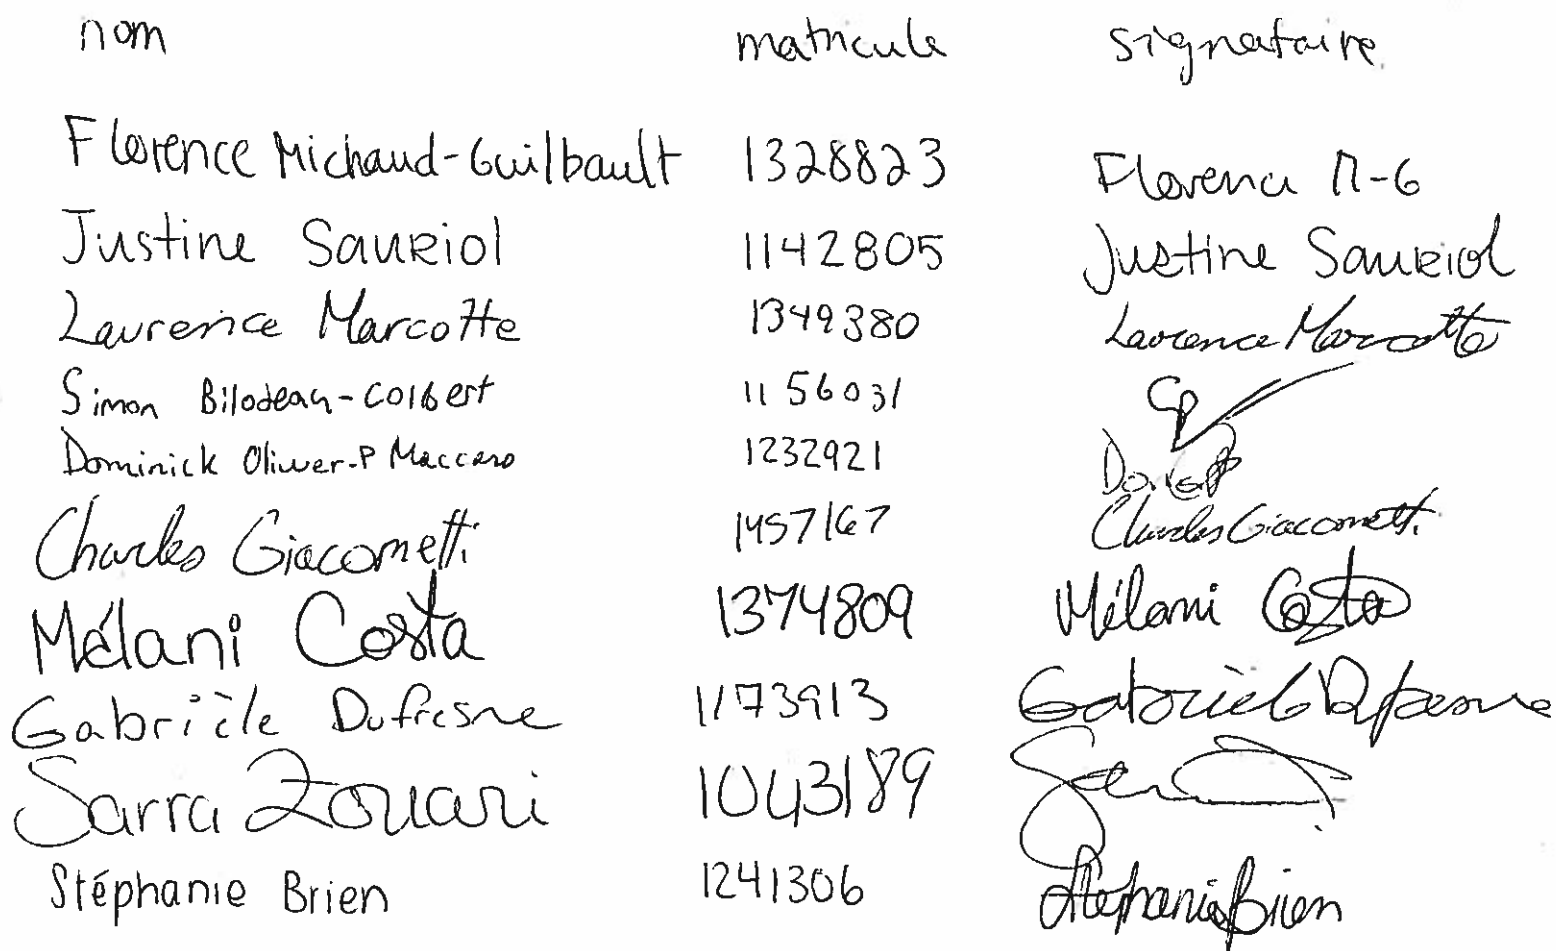 nom matricule signataire
Florence Michaud-Guilbault 1328823 Florence M-G
Justine Sauriol 1142805 Justine Sauriol
Laurence Marcotte 1349380 Laurence Marcotte
Simon Bilodeau-Colbert 1156031
Dominick Oliver-P Maccaro 1232921
Charles Giacometti 1457167 Charles Giacometti
Mélani Costa 1374809 Mélani Costa
Gabrièle Dufresne 1173913 Gabrièle Dufresne
Sarra Zouari 1043189
Stéphanie Brien 1241306 Stéphanie Brien